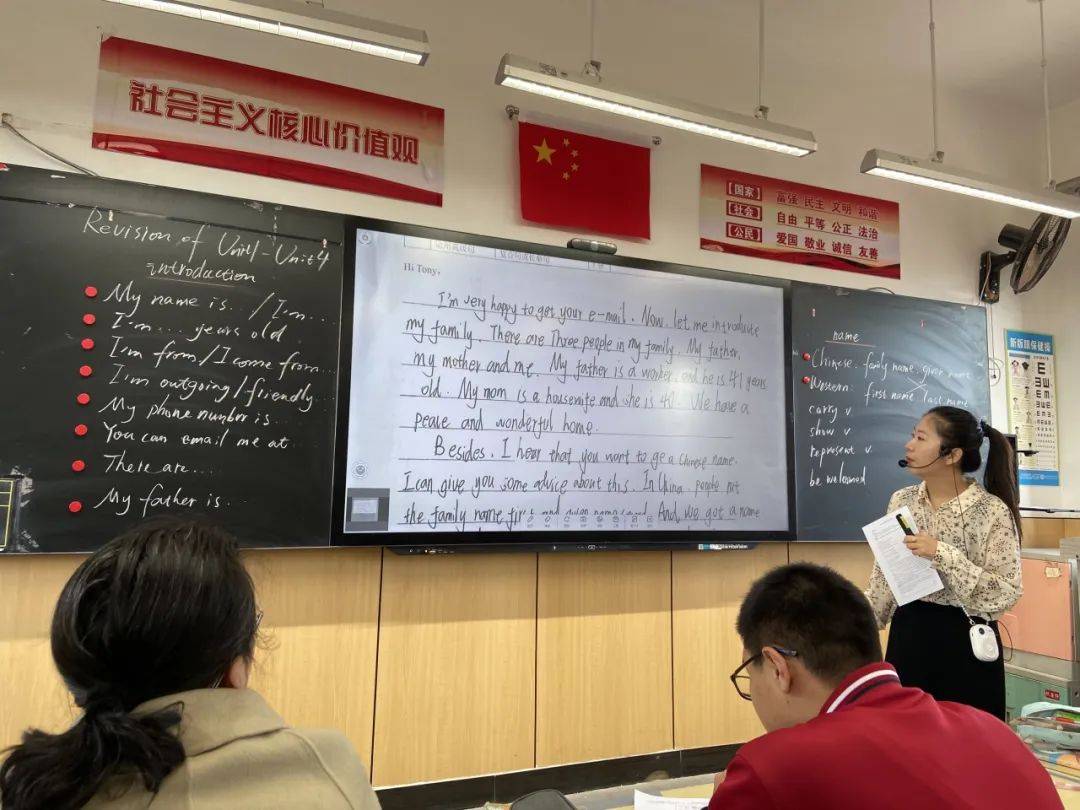 社会主义核心价值观
【国家】 富强 民主 文明 和谐
【社会】 自由 平等 公正 法治
【公民】 爱国 敬业 诚信 友善
Revision of Unit1-Unit4
introduction
My name is... /I'm...
I'm... years old.
I'm from/I come from...
I'm outgoing/friendly.
My phone number is
You can email me at
There are...
My father is...
Hi Tony,
I'm very happy to get your e-mail. Now, let me introduce
my family. There are Three people in my family. My father,
my mother and me. My father is a worker, and he is 41 years
old. My mom is a housewife and she is 41. We have a
peace and wonderful home.
Besides, I hear that you want to ge a Chinese name.
I can give you some advice about this. In China, people put
the family name first and given name. And we got a name
name
Chinese: family name, given name
Western: first name last name
carry v
show v
represent v.
be welcomed